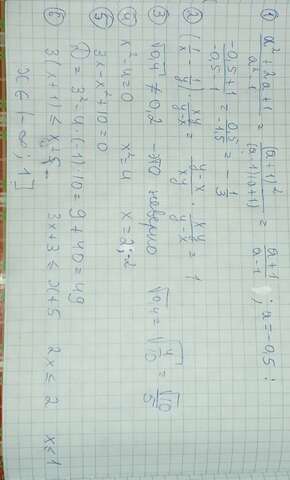 ① (a² + 2a + 1)/(a² - 1) = (a+1)²/((a-1)(a+1)) = (a+1)/(a-1) ; a = -0,5 :
(-0,5+1)/(-0,5-1) = 0,5/-1,5 = - 1/3
② (1/x - 1/y) · xy/(y-x) = (y-x)/xy · xy/(y-x) = 1
③ √0,4 ≠ 0,2 - это неверно √0,4 = √(4/10) = √10/5
④ x² - 4 = 0 x² = 4 x = 2; -2
⑤ 3x - x + 10 = 0
D = 3² - 4 · (-1) · 10 = 9 + 40 = 49
⑥ 3(x+1) ≤ x+5 3x+3 ≤ x+5 2x ≤ 2 x ≤ 1
x ∈ (-∞; 1]